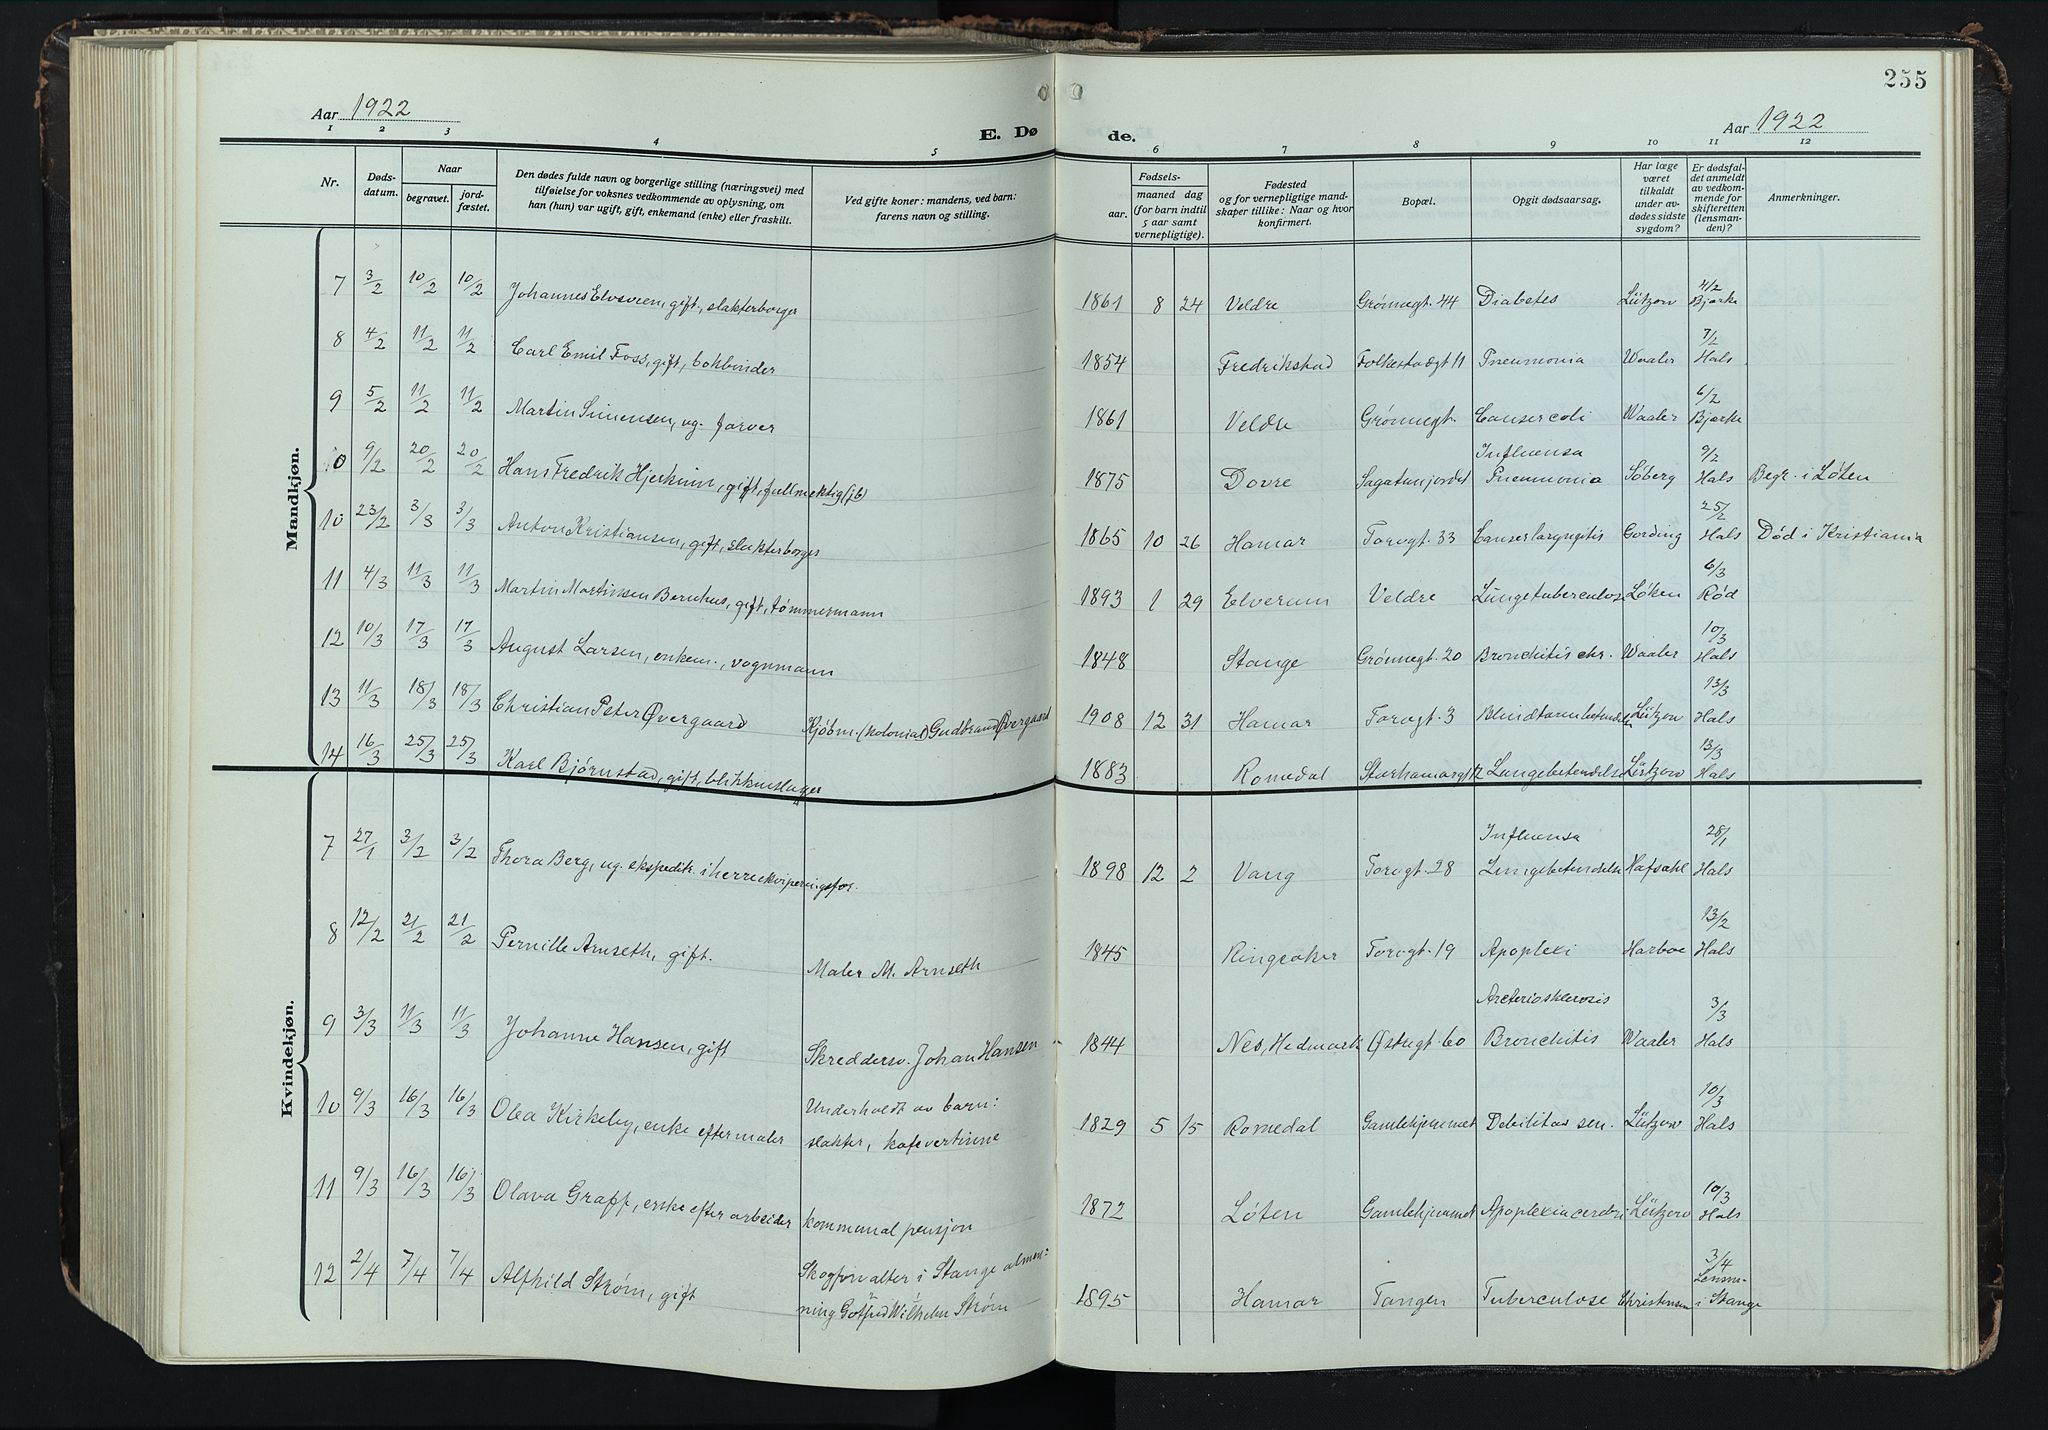 255
Aar 1922
E. Døde.
Aar 1922
1 2 3 4 5 6 7 8 9 10 11 12
Nr.
Dødsdatum.
Naar
begravet.
jordfæstet.
Den dødes fulde navn og borgerlige stilling (næringsvei) med
tilføielse for voksnes vedkommende av oplysning, om
han (hun) var ugift, gift, enkemand (enke) eller fraskilt.
Ved gifte koner: mandens, ved barn:
farens navn og stilling.
Fødsels-
aar.
maaned dag
(for barn indtil
5 aar samt
vernepligtige).
Fødested
og for vernepligtige mand-
skaper tillike: Naar og hvor
konfirmert.
Bopæl.
Opgit dødsaarsag.
Har læge
været
tilkaldt
under av-
dødes sidste
sygdom?
Er dødsfal-
det anmeldt
av vedkom-
mende for
skifteretten
(lensman-
den)?
Anmerkninger.
Mandkjøn.
7 3/2 10/2 10/2 Johannes Elvsveen, gift, slakterborger 1861 8 24 Veldre Grønnegt. 44 Diabetes Lützow 4/2 Bjørke
8 4/2 11/2 11/2 Carl Emil Foss, gift, bokbinder 1854 Fredrikstad Folkestadgt 11 Pneumonia Waaler 7/2 Hals
9 5/2 11/2 11/2 Martin Simensen, ug. farver 1861 Veldre Grønnegt. Canser coli Waaler 6/2 Bjørke
10 9/2 20/2 20/2 Hans Fredrik Hjerkinn, gift, fullmektig (jb) 1875 Dovre Sagatunjordet Influensa Pneumonia Søberg 9/2 Hals Begr. i Løten
10 23/2 3/3 3/3 Anton Kristiansen, gift, slakterborger 1865 10 26 Hamar Torvgt. 33 Canser laryngitis Gording 25/2 Hals Død i Kristiania
11 4/3 11/3 11/3 Martin Martinsen Bernhus, gift, tømmermann 1893 1 29 Elverum Veldre Lungetuberculos Løken 6/3 Rød
12 10/3 17/3 17/3 August Larsen, enkem., vognmann 1848 Stange Grønnegt. 20 Bronchitis chr. Waaler 10/3 Hals
13 11/3 18/3 18/3 Christian Peter Øvergaard Kjøbm. (kolonial) Gudbrand Øvergaard 1908 12 31 Hamar Torvgt. 3 Blindtarmbetendelse Lützow 13/3 Hals
14 16/3 25/3 25/3 Karl Bjørnstad, gift, blikkenslager 1883 Romedal Storhamargt 12 Lungebetendelse Lützow 13/3 Hals
Kvindekjøn.
7 27/1 3/2 3/2 Thora Berg, ug. ekspeditr. i herreekviperingsfor. 1898 12 2 Vang Torvgt. 28 Influensa Lungebetendelse Hafsahl 28/1 Hals
8 12/2 21/2 21/2 Pernille Arnseth, gift. Maler M. Arnseth 1845 Ringsaker Torvgt. 19 Apoplexi Harboe 13/2 Hals
9 3/3 11/3 11/3 Johanne Hansen, gift Skreddersv. Johan Hansen 1844 Nes, Hedmark Østregt. 60 Arcteriosklerosis Bronchitis Waaler 3/3 Hals
10 9/3 16/3 16/3 Olea Kirkeby, enke efter maler Underholdt av barn: slakter, kafevertinne 1829 5 15 Romedal Gamlehjemmet Debilitas sen. Lützow 10/3 Hals
11 9/3 16/3 16/3 Olava Graff, enke efter arbeider kommunal pensjon 1872 Løten Gamlehjemmet Apoplexia cerebri Lützow 10/3 Hals
12 2/4 7/4 7/4 Alfhild Strøm, gift Skogforvalter i Stange almen-
ning Gotfred Wilhelm Strøm 1895 Hamar Tangen Tuberculose Christensen 3/4 Lensm. i Stange